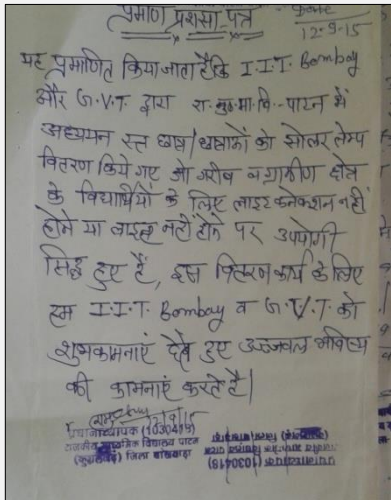 प्रमाण प्रशंसा पत्र
12-9-15
यह प्रमाणित किया जाता है कि I.I.T. Bombay
और G.V.T द्वारा रा.मुख.मा.वि.-पाटन में
अध्ययन रत छात्र/छात्राओं को सोलर लेम्प
वितरण किये गए जो गरीब व ग्रामीण क्षेत्र
के विद्यार्थियों के लिए लाइट कनेक्शन नहीं
होने या लाइट नहीं होने पर उपयोगी
सिद्ध हुए हैं, इस वितरण कार्य के लिए
हम I.I.T. Bombay व G.V.T. को
शुभकामनाएं देते हुए उज्जवल भविष्य
की कामनाएं करते है।
प्रधानाध्यापक (1030418)
राजकीय माध्यमिक विद्यालय पाटन
जिला बांसवाड़ा